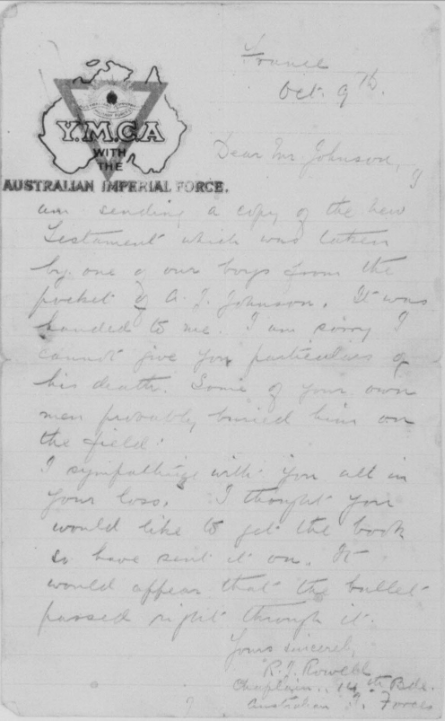 France
Oct. 9th.
Y.M.C.A
WITH
THE
AUSTRALIAN IMPERIAL FORCE.
Dear Mr Johnson, I
am sending a copy of the New
Testament which was taken
by one of our boys from the
pocket of A. J. Johnson. It was
handed to me. I am sorry I
cannot give you particulars of
his death. Some of your own
men probably buried him on
the field.
I sympathize with you all in
your loss. I thought you
would like to get the book
so have sent it on. It
would appear that the bullet
passed right through it.
Yours sincerely
R. J.
Chaplain. 14th Bde.
Australian I. Forces